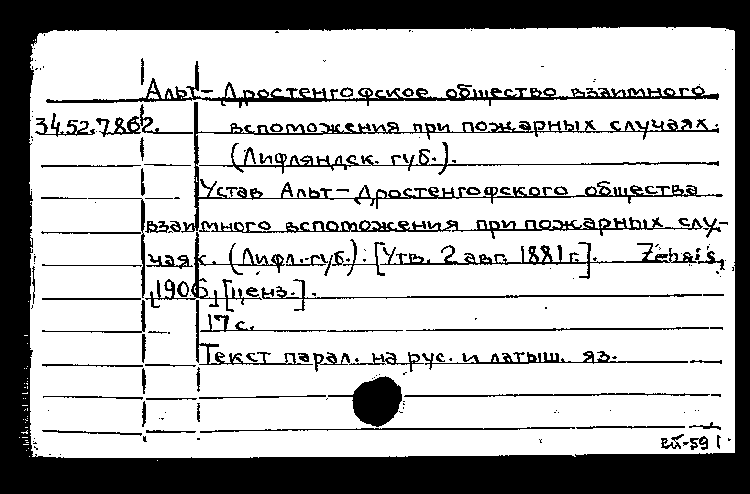 Альт-Дростенгофское общество взаимного
34.52.7862. вспоможения при пожарных случаях.
(Лифляндск. губ.).
Устав Альт-Дростенгофского общества
взаимного вспоможения при пожарных слу-
чаях. (Лифл. губ.). [Утв. 2 авг. 1881 г.]. Zehsis,
1906, [ценз.].
17 с.
Текст парал. на рус. и латыш. яз.